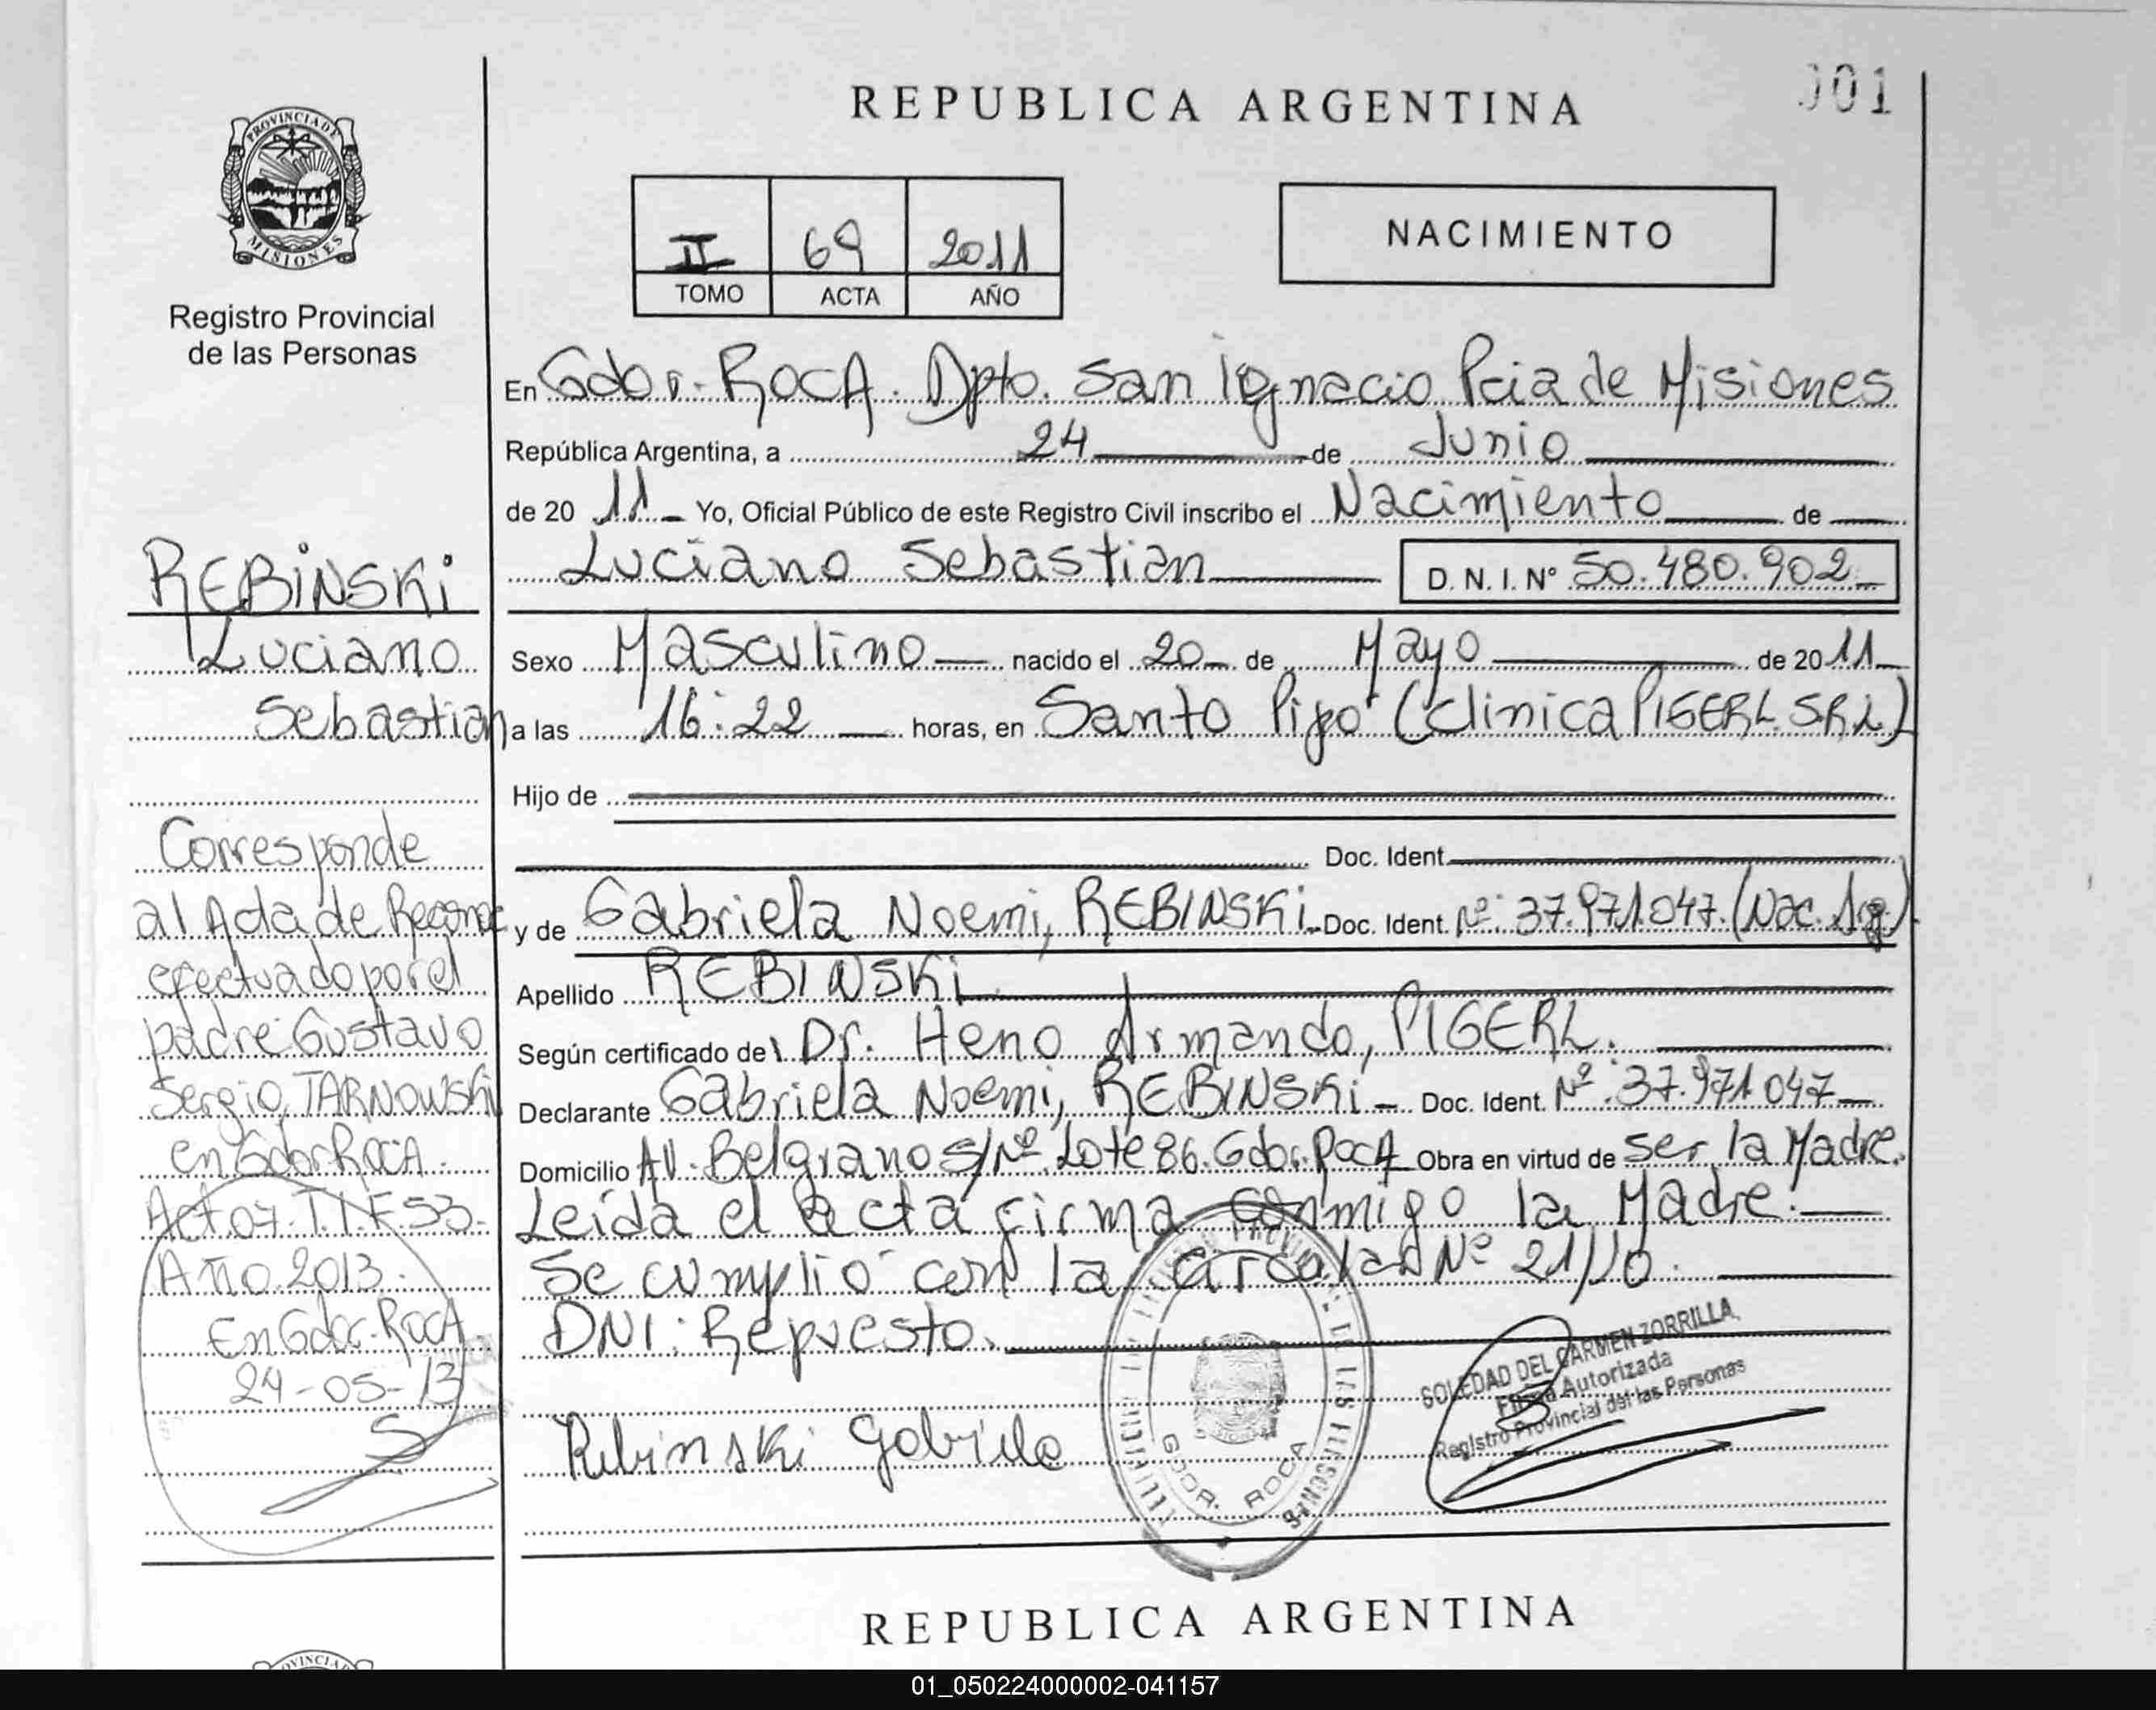 REPUBLICA ARGENTINA
001
PROVINCIA DE
MISIONES
Registro Provincial
de las Personas
II 69 2011
TOMO ACTA AÑO
NACIMIENTO
En Gdor. ROCA. Dpto. San Ignacio Pcia de Misiones
República Argentina, a 24 de Junio
de 20 11 Yo, Oficial Público de este Registro Civil inscribo el Nacimiento de
Luciano Sebastian D. N. I. Nº 50.480.902
Sexo Masculino nacido el 20 de Mayo de 20 11
a las 16:22 horas, en Santo Pipó (Clinica PIGERL SRL)
Hijo de
Doc. Ident.
y de Gabriela Noemi, REBINSKi Doc. Ident. Nº 37.971.047. (Nac. Arg)
Apellido REBINSKi
Según certificado del Dr. Heno Armando, PIGERL.
Declarante Gabriela Noemi, REBINSKi Doc. Ident. Nº: 37.971.047
Domicilio AV. Belgrano S/Nº Lote 86. Gdor. RocA Obra en virtud de ser la Madre.
Leída el acta firma conmigo la Madre.
Se cumplió con la Circular Nº 21/10.
DNI: Repuesto.
Rebinski Gabriela
GDOR. ROCA
SOLEDAD DEL CARMEN ZORRILLA
Firma Autorizada
Registro Provincial de las Personas
REBiNSKi
Luciano
Sebastian
Corresponde
al Acta de Reconoc
efectuado por el
padre Gustavo
Sergio, TARNOWSKi
en Gdor RocA.
Act 07. T.I.F.53.
Año 2013.
En Gdor. RocA
24-05-13
REPUBLICA ARGENTINA
01_050224000002-041157